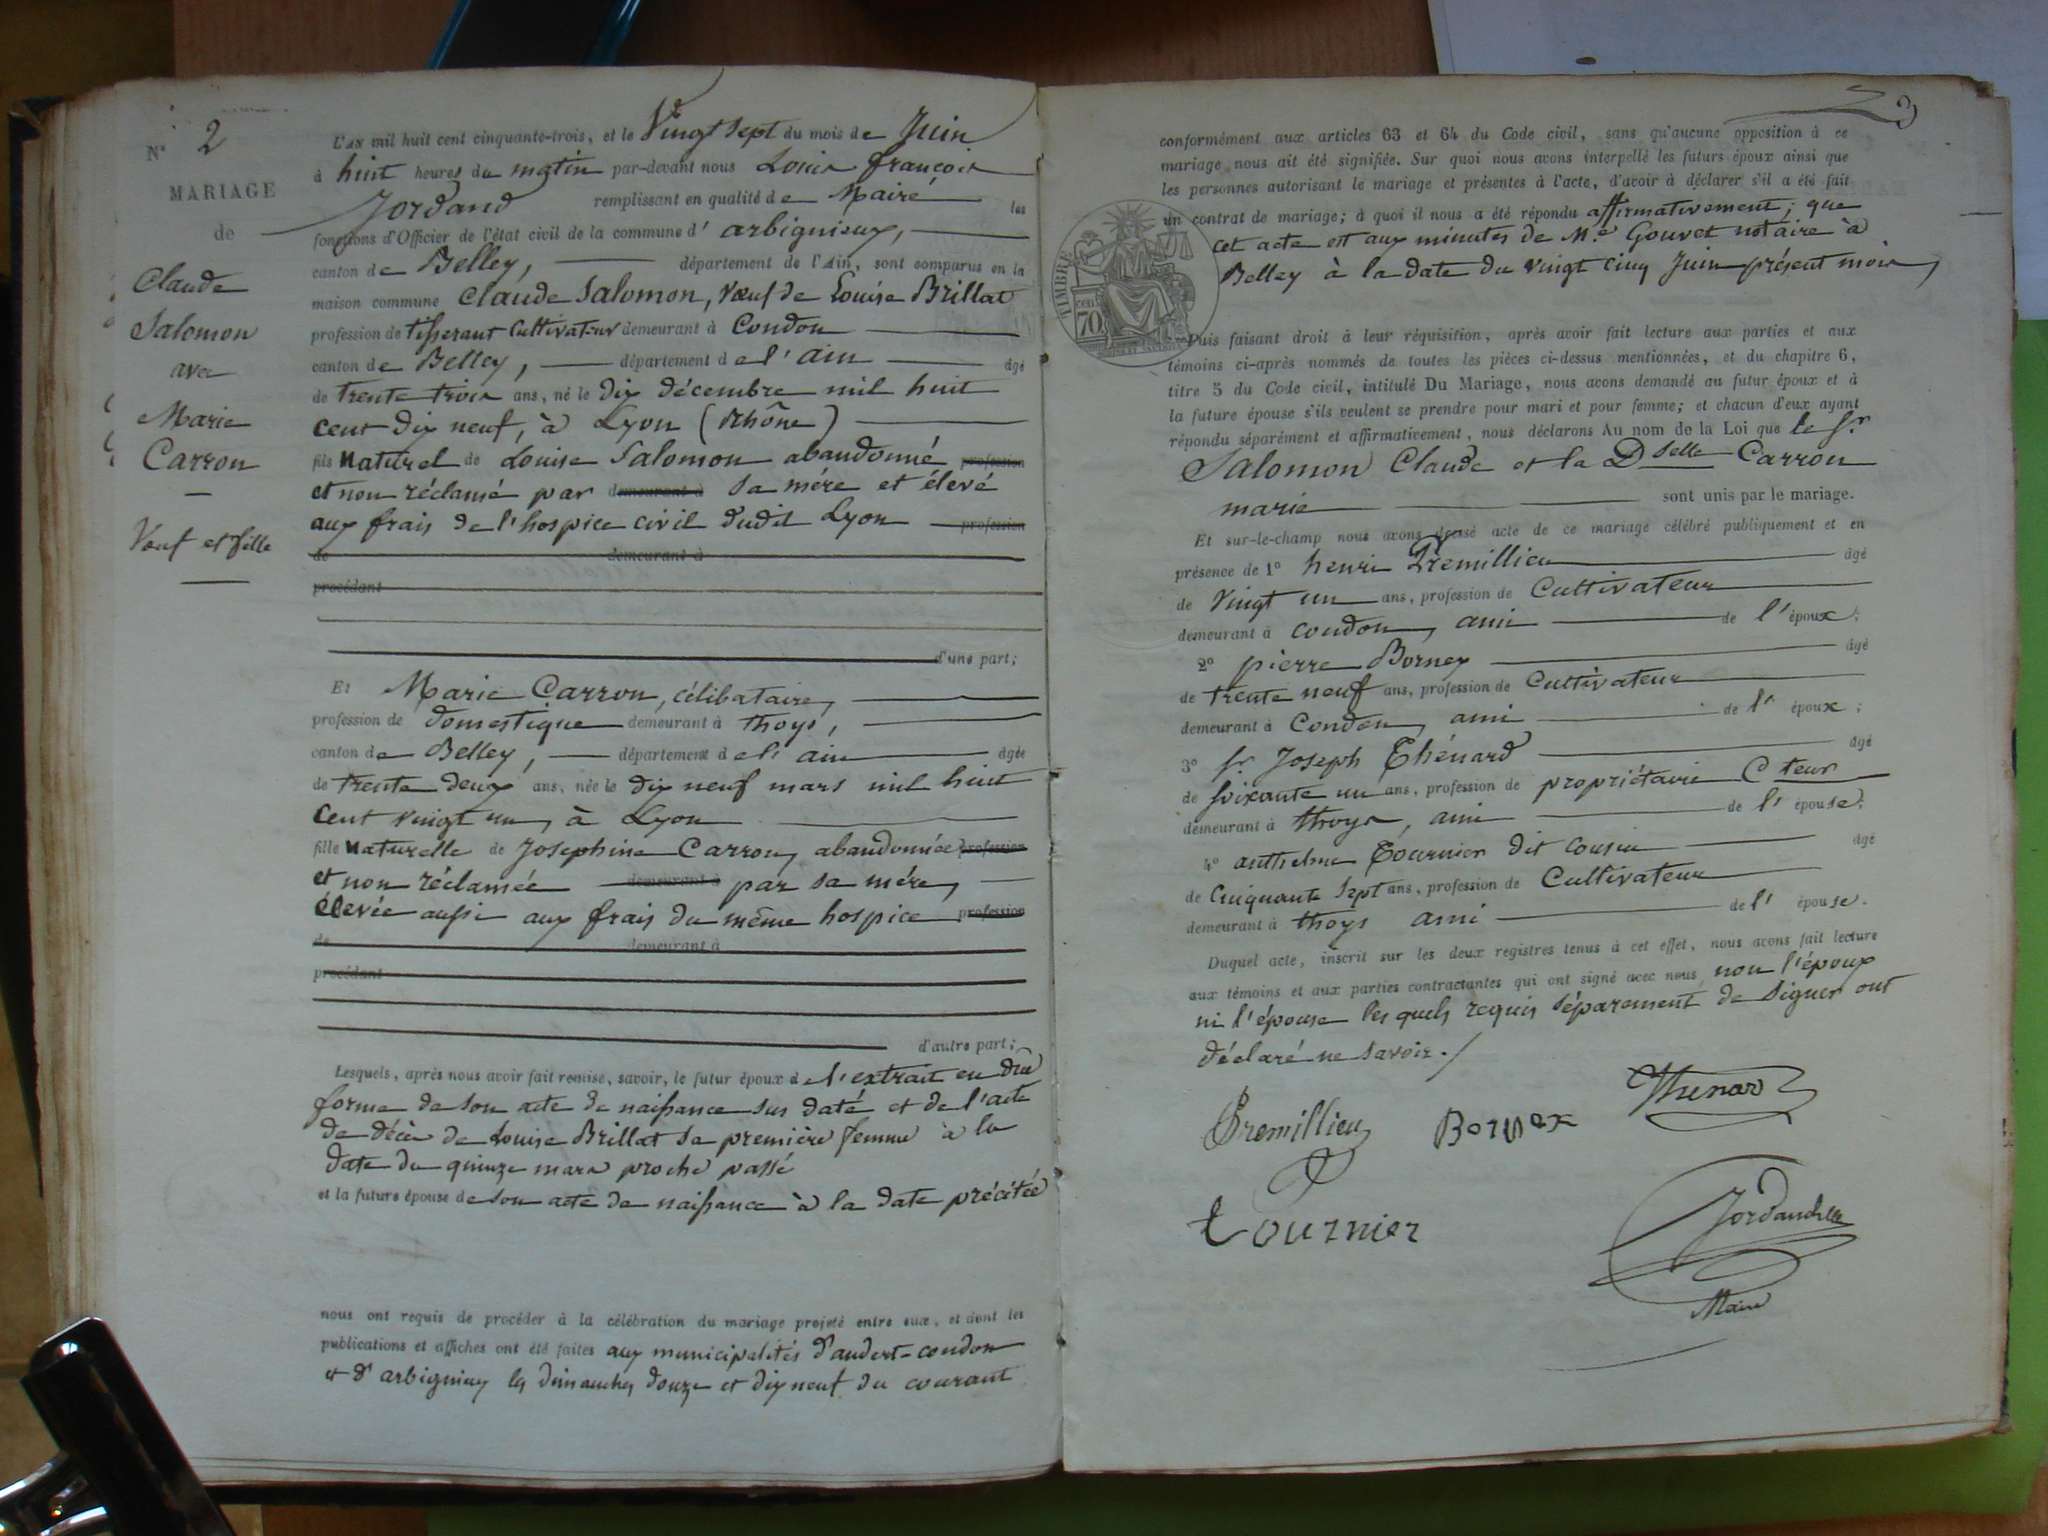 N° 2
MARIAGE
de
Claude
Salomon
avec
Marie
Carron
Veuf et fille
L'AN mil huit cent cinquante-trois, et le Vingt sept du mois de Juin
à huit heures du matin par-devant nous Louis françois
Jordand remplissant en qualité de Maire les
fonctions d'Officier de l'état civil de la commune d'arbignieux,
canton de Belley, département de l'Ain, sont comparus en la
maison commune Claude Salomon, Vœuf de Louise Brillat
profession de tisserant Cultivateur demeurant à Condon
canton de Belley, département de l'ain âgé
de trente trois ans, né le dix décembre mil huit
cent dix neuf, à Lyon (Rhône)
fils Naturel de Louise Salomon abandonné profession
et non réclamé par demeurant à sa mère et élevé
aux frais de l'hospice civil dudit Lyon profession
de demeurant à
procédant
d'une part;
Et Marie Carron, célibataire,
profession de domestique demeurant à thoys,
canton de Belley, département de l'ain âgée
de trente deux ans, née le dix neuf mars mil huit
cent vingt un, à Lyon
fille Naturelle de Josephine Carron, abandonnée profession
et non réclamée demeurant à par sa mère,
élevée aussi aux frais du même hospice profession
de demeurant à
procédant
d'autre part;
Lesquels, après nous avoir fait remise, savoir, le futur époux de l'extrait en dûe
forme de son acte de naissance sus daté et de l'acte
de décès de Louise Brillat sa première femme à la
date du quinze mars proche passé
et la future épouse de son acte de naissance à la date précitée
nous ont requis de procéder à la célébration du mariage projeté entre eux, et dont les
publications et affiches ont été faites aux municipalités d'andert-condon
et d'arbignieux les dimanches douze et dix neuf du courant
3
conformément aux articles 63 et 64 du Code civil, sans qu'aucune opposition à ce
mariage nous ait été signifiée. Sur quoi nous avons interpellé les futurs époux ainsi que
les personnes autorisant le mariage et présentes à l'acte, d'avoir à déclarer s'il a été fait
un contrat de mariage; à quoi il nous a été répondu affirmativement; que
cet acte est aux minutes de Me Gouvet notaire à
Belley à la date du vingt cinq Juin présent mois,
TIMBRE
70 cent
Puis faisant droit à leur réquisition, après avoir fait lecture aux parties et aux
témoins ci-après nommés de toutes les pièces ci-dessus mentionnées, et du chapitre 6,
titre 5 du Code civil, intitulé Du Mariage, nous avons demandé au futur époux et à
la future épouse s'ils veulent se prendre pour mari et pour femme; et chacun d'eux ayant
répondu séparément et affirmativement, nous déclarons Au nom de la Loi que le Sr
Salomon Claude et la Dselle Carron
marie sont unis par le mariage.
Et sur-le-champ nous avons dressé acte de ce mariage célébré publiquement et en
présence de 1° henri Premillieu âgé
de Vingt un ans, profession de Cultivateur
demeurant à condon, ami de l'époux;
2° pierre Bornex âgé
de trente neuf ans, profession de Cultivateur
demeurant à Condon, ami de l'époux;
3° Sr Joseph Thénard âgé
de soixante un ans, profession de propriétaire Cteur
demeurant à thoys, ami de l'épouse;
4° anthelme Tournier dit cousin âgé
de Cinquante sept ans, profession de Cultivateur
demeurant à thoys ami de l'épouse.
Duquel acte, inscrit sur les deux registres tenus à cet effet, nous avons fait lecture
aux témoins et aux parties contractantes qui ont signé avec nous, non l'époux
ni l'épouse les quels requis séparement de signer ont
déclaré ne savoir./
Premillieu Bornex Thenard
Tournier Jordand
Maire